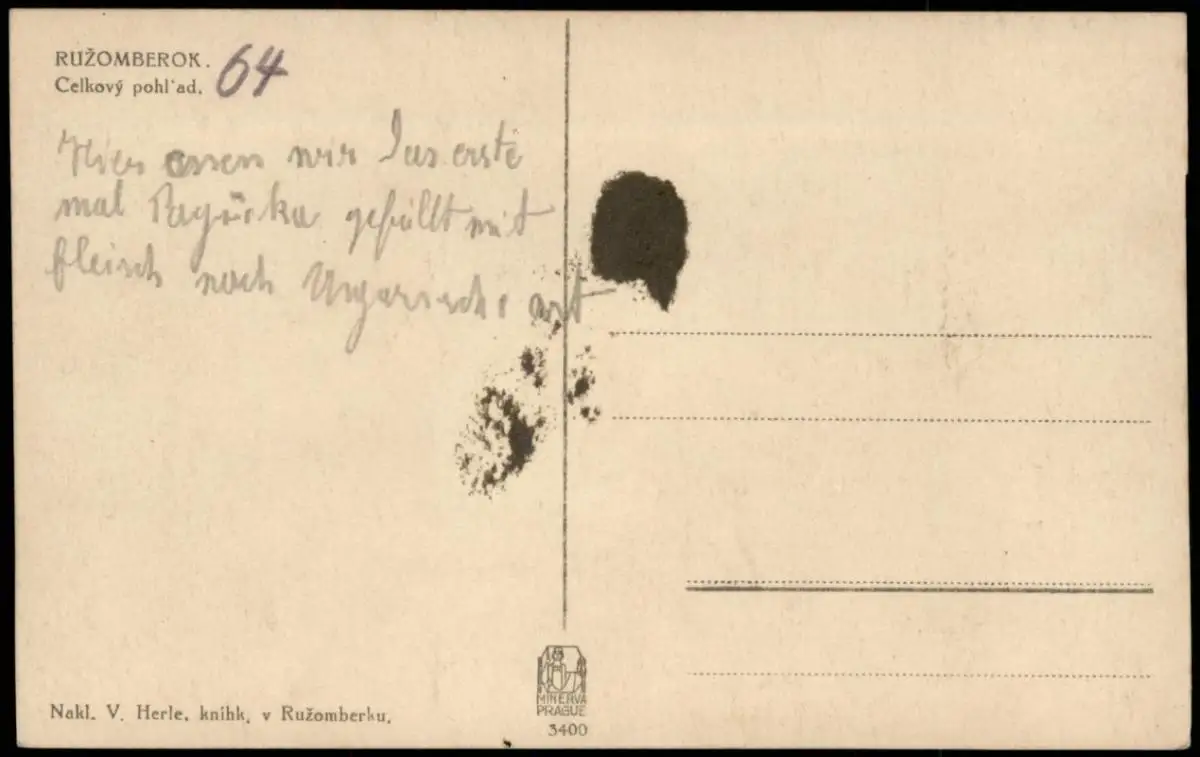 RUŽOMBEROK. 64
Celkový pohl'ad.
Hier assen wir das erste
mal gefüllt mit
fleisch nach Ungarische art
Nakl. V. Herle, knihk. v Ružomberku.
MINERVA
PRAGUE
3400